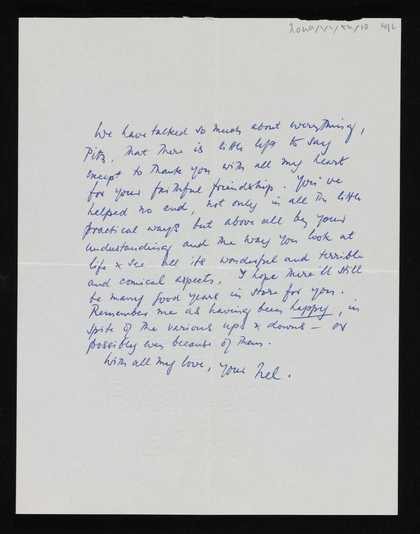 We have talked so much about everything,
Pitz, that there is little left to say
except to thank you with all my heart
for your faithful friendship. You've
helped no end, not only in all the little
practical ways but above all by your
understanding and the way you look at
life & see all its wonderful and terrible
and comical aspects. I hope there'll still
be many good years in store for you.
Remember me as having been happy, in
spite of the various ups & downs – or
possibly even because of them.
With all my love, your Nel.